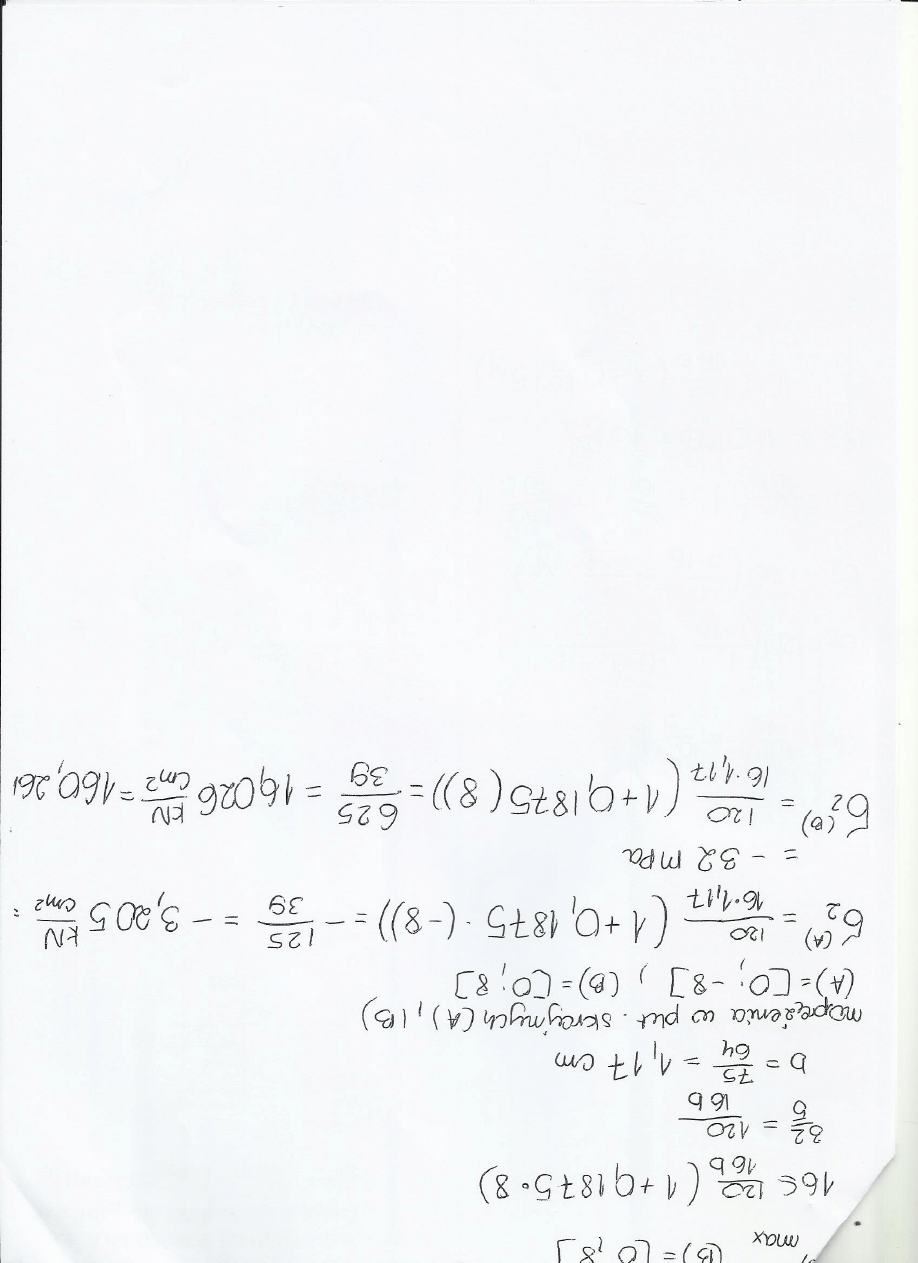 max (B) = [0 ; 8]
16 ≤ 120/16b (1 + 0,1875 · 8)
32/5 = 120/16b
b = 75/64 = 1,17 cm
naprężenia w pkt. skrajnych (A), (B)
(A) = [0; -8] , (B) = [0; 8]
σ₂(A) = 120/16·1,17 (1 + 0,1875 · (-8)) = - 125/39 = - 3,205 kN/cm² =
= - 32 mpa
σ₂(B) = 120/16·1,17 (1 + 0,1875 (8)) = 625/39 = 16,026 kN/cm² = 160,261